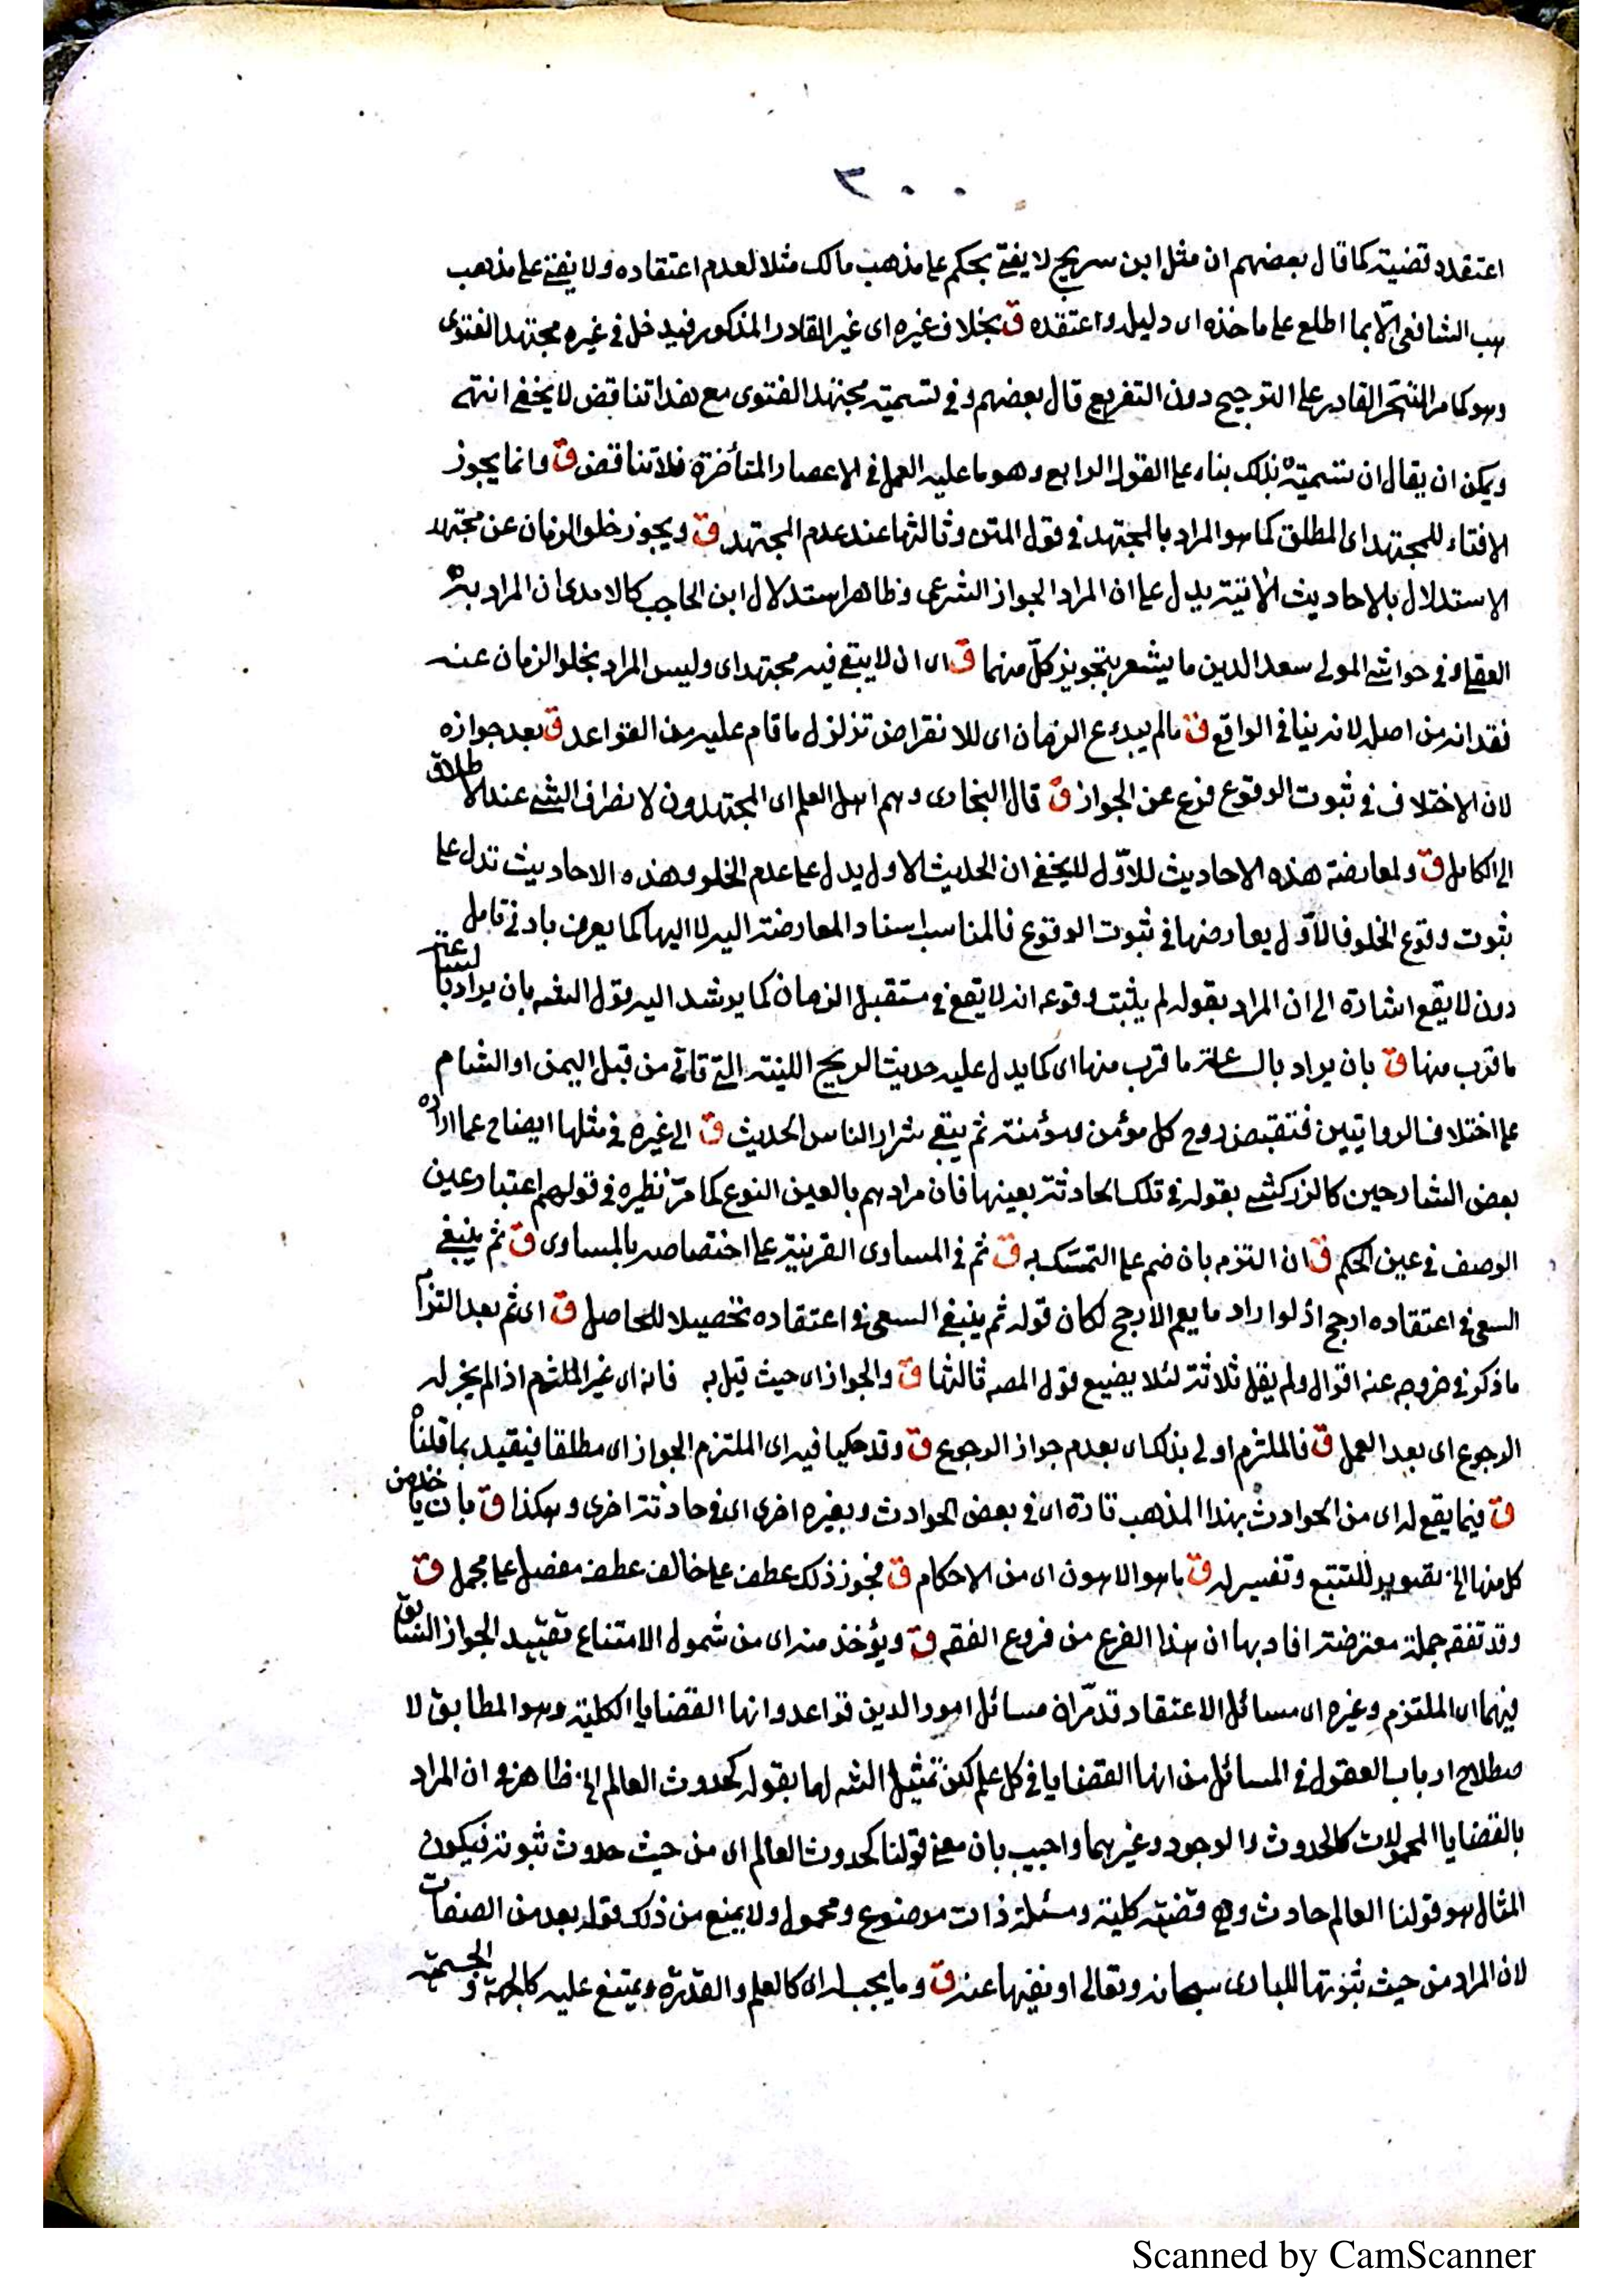 ٣٠٠
اعتقده قضيته كما قال بعضهم ان مثل ابن سريج لا يفتى بحكم على مذهب مالك مثلا لعدم اعتقاده ولا يفتى على مذهب
هب الشافعى الّا بما اطلع على ماخذه اى دليله واعتقده ق بخلاف غيره اى غير القادر المذكور فيدخل فى غيره مجتهد الفتوى
وهو كما مر المتبحر القادر على الترجيح دون التفريع قال بعضهم وفى تسميته مجتهد الفتوى مع هذا تناقض لا يخفى انتهى
ويمكن ان يقال ان تسميته بذلك بناء على القول الرابع وهو ما عليه العمل فى الاعصار المتأخرة فلا تناقض ق وانما يجوز
الافتاء للمجتهد اى المطلق كما هو المراد بالمجتهد فى قول المتن وثالثها عند عدم المجتهد ق ويجوز خلو الزمان عن مجتهد
الاستدلال بالاحاديث الآتية يدل على ان المراد الجواز الشرعى وظاهر استدلال ابن الحاجب كالامدى ان المراد به
العقلى وفى حواشى المولى سعد الدين ما يشعر بتجويز كلّ منهما ق اى ان لا يبقى فيه مجتهد اى وليس المراد بخلو الزمان عنه
فقدانه من اصله لانه ينافى الواقع ق مالم يبدء ع الزمان اى للانقراض تزلزل ما قام عليه من القواعد ق بعد جوازه
لان الاختلاف فى ثبوت الوقوع فرع عن الجواز ق قال البخارى وهم اهل العلم اى المجتهدون لانصراف الشئ عند الاطلاق
الى الكامل ق ولمعارضة هذه الاحاديث للاوّل لا يخفى ان الحديث الاول يدل على عدم الخلو وهذه الاحاديث تدل على
ثبوت وقوع الخلو فالاوّل يعارضها فى ثبوت الوقوع فالمناسب اسناد المعارضة اليه لا اليها كما يعرف بادنى تامل
دون لا يقع اشارة الى ان المراد بقوله لم يثبت وقوعه انه لا يقع فى مستقبل الزمان كما يرشد اليه قول بان يراد بالساعة
ما قرب منها ق بان يراد بالساعة ما قرب منها اى كما يدل عليه حديث الريح اللينة التى تاتى من قبل اليمن او الشام
على اختلاف الروايتين فتقبض روح كل مؤمن ومؤمنة ثم يبقى شرار الناس الحديث ق الى غيره فى مثلها ايضاح عما اراده
بعض الشارحين كالزركشى بقوله فى تلك الحادثة بعينها فان مرادهم بالعين النوع كما مرّ نظيره فى قولهم اعتبار عين
الوصف فى عين الحكم ق ان التزم بان ضم على التمسّك به ق ثم فى المساوى القرينة على اختصاصه بالمساوى ق ثم ينبغى
السعى فى اعتقاده ارجح اذ لو اراد ما يعم الارجح لكان قوله ثم ينبغى السعى فى اعتقاده تحصيلا للحاصل ق اى ثم بعد التزام
ما ذكر فى خروجه عنه اقوال ولم يقل ثلاثة لئلا يضيع قول المصـ ثالثها ق والجواز اى حيث قيل به فانه اى غير الملتزم اذا لم يجز له
الرجوع اى بعد العمل ق فالملتزم اولى بذلك اى بعدم جواز الرجوع ق وقد حكيا فيه اى الملتزم الجواز اى مطلقا فيقيد بما قلناه
ق فيما يقع له اى من الحوادث بهذا المذهب تارة اى فى بعض الحوادث وبغيره اخرى اى فى حادثة اخرى وهكذا ق بان ياخذ من
كل منها الخ تصوير للتتبع وتفسير له ق ما هو الاهون اى من الاحكام ق فجوز ذلك عطف على خالف عطف مفصل على مجمل ق
وقد تفقه جملة معترضة افاد بها ان هذا الفرع من فروع الفقه ق ويؤخذ منه اى من شمول الامتناع تقييد الجواز السابق
فيهما اى الملتزم وغيره اى مسائل الاعتقاد قد مرّ ان مسائل امور الدين قواعد وانها القضايا الكلية وهو المطابق لا
صطلاح ارباب العقول فى المسائل من انها القضايا فى كل علم لكن تمثيل الشـ لها بقوله كحدوث العالم الخ ظاهر فى ان المراد
بالقضايا المحمولات كالحدوث والوجود وغيرهما واجيب بان معنى قولنا كحدوث العالم اى من حيث حدوث ثبوته فيكون
المثال هو قولنا العالم حادث وهى قضية كلية ومسئلة ذات موضوع ومحمول ولا يمنع من ذلك قوله بعد من الصفات
لان المراد من حيث ثبوتها للبارى سبحانه وتعالى او نفيها عنه ق وما يجب له اى كالعلم والقدرة ويمتنع عليه كالجهة والجسمية
Scanned by CamScanner